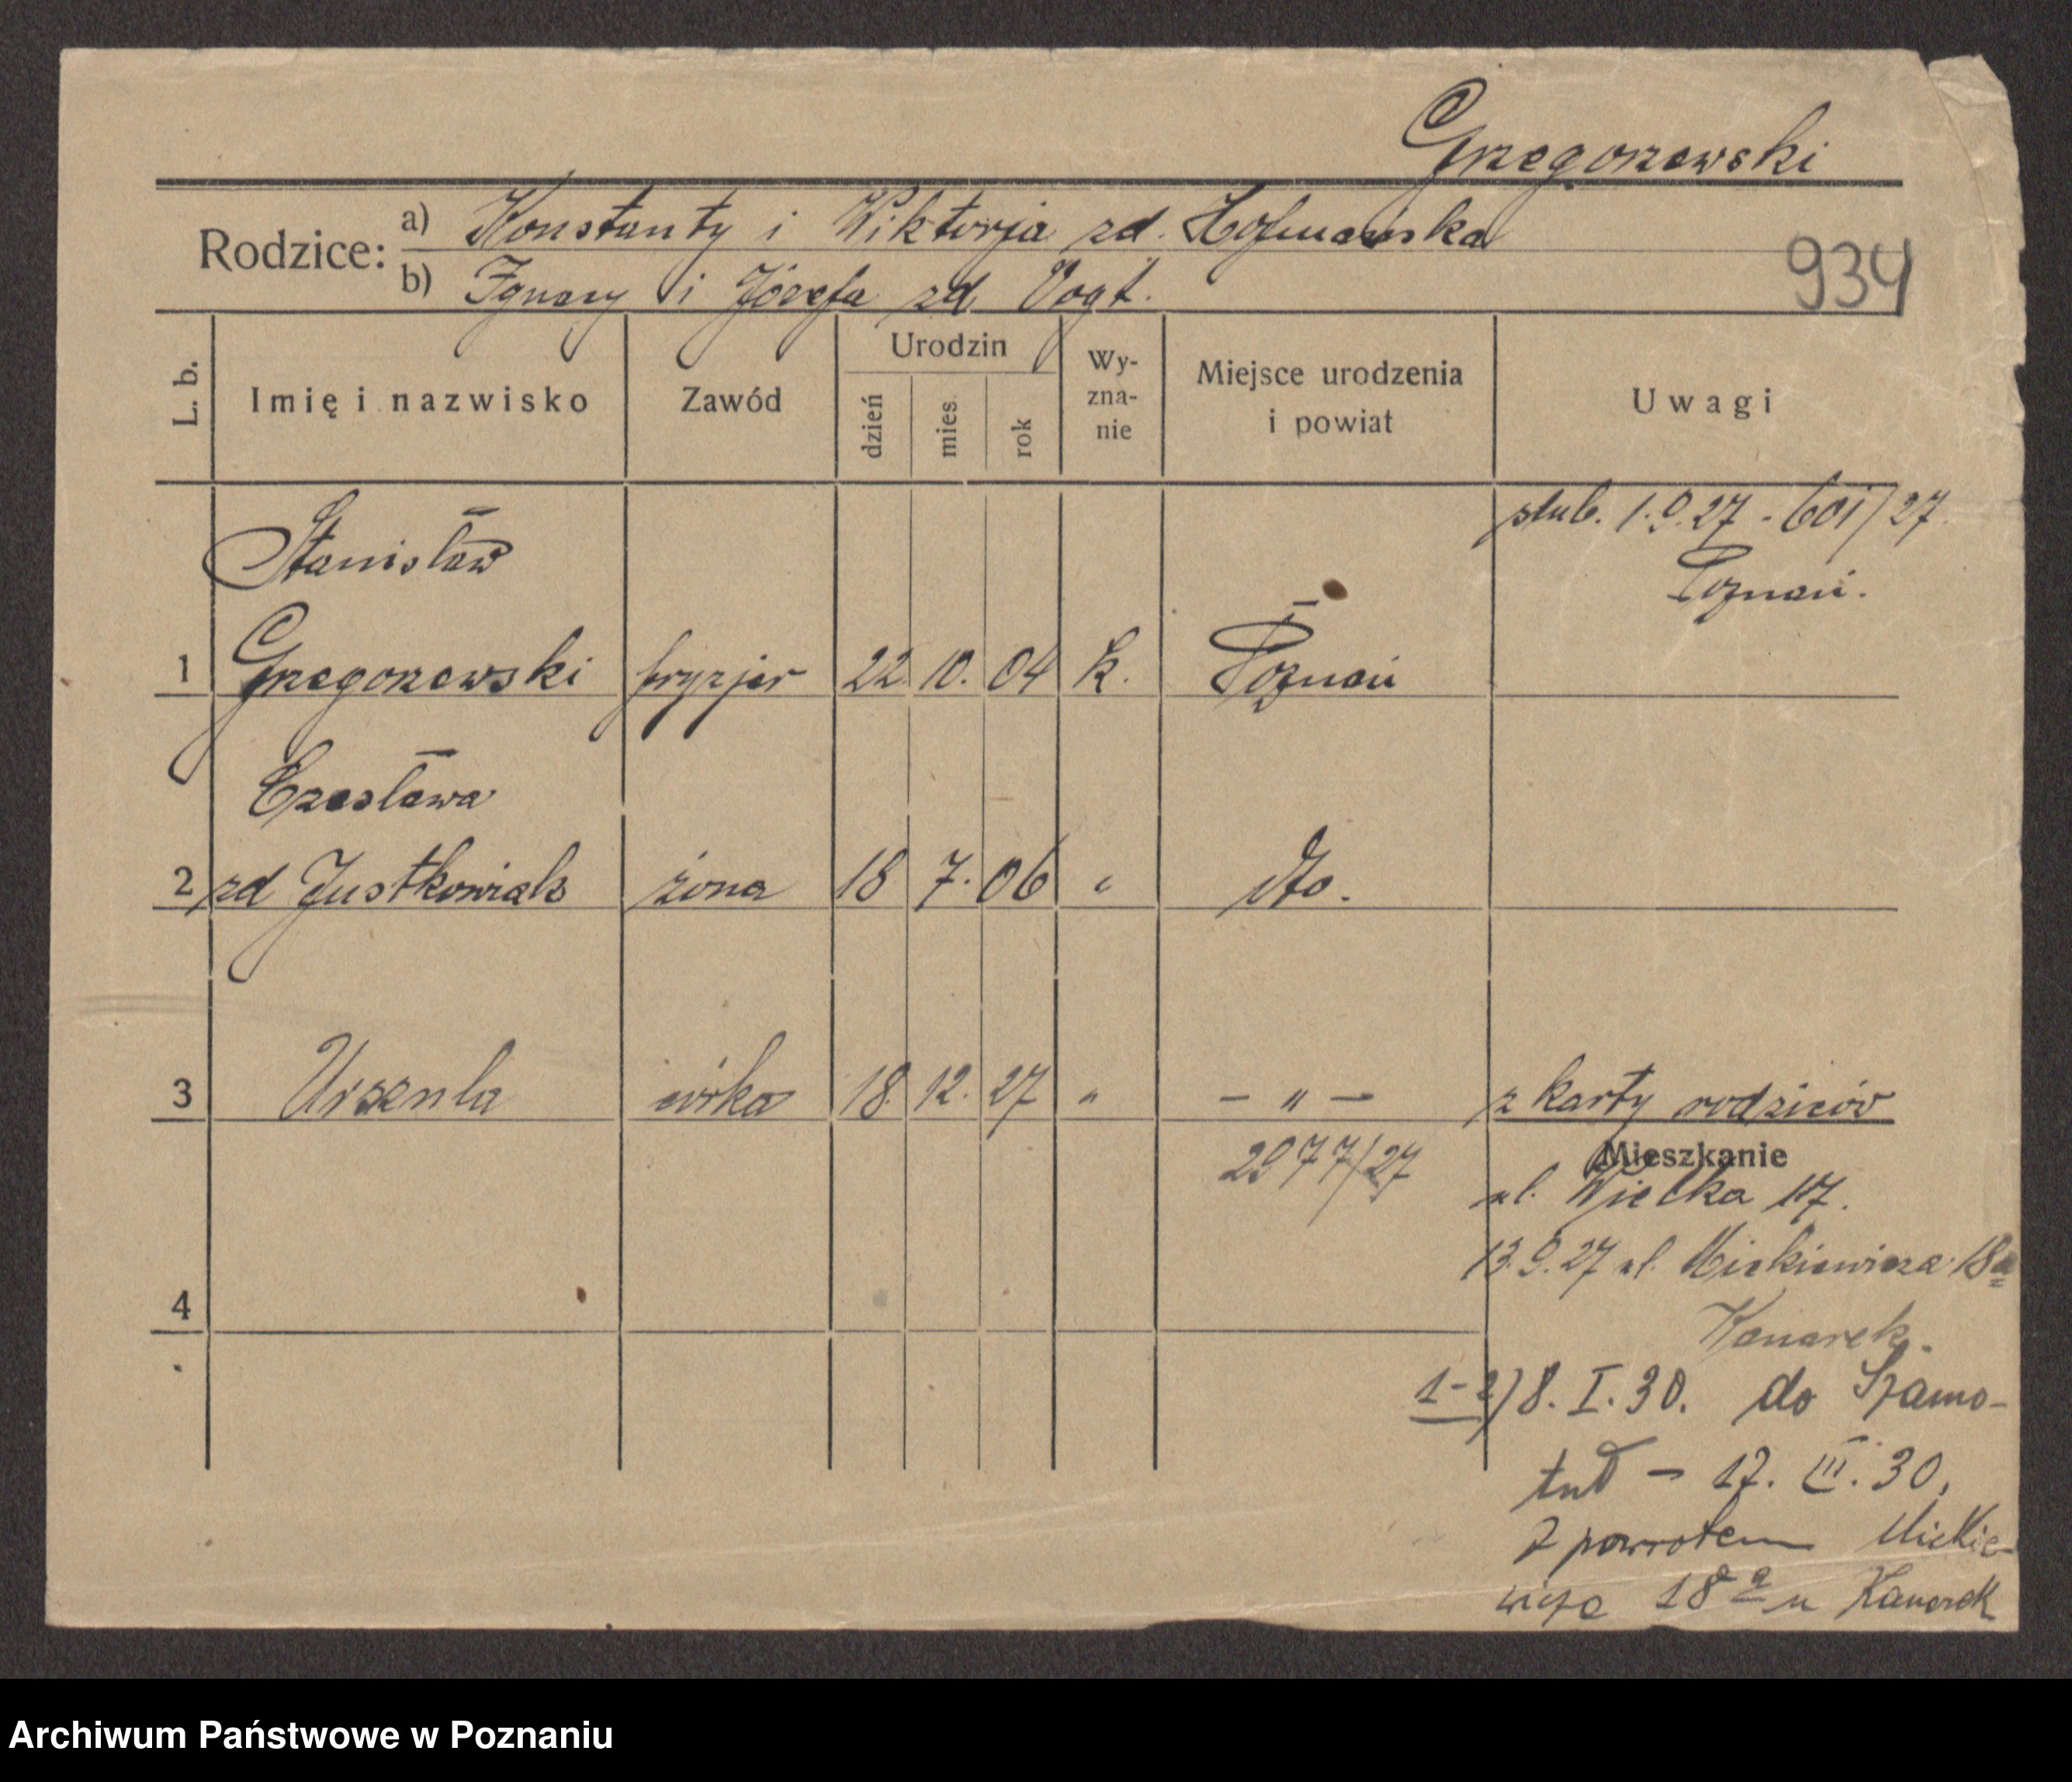 Grzegorzewski
Rodzice: a) Konstanty i Wiktorja zd. Hofmańska
b) Ignacy i Józefa zd Vogt.
934
L. b.
Imię i nazwisko
Zawód
Urodzin
dzień
mies.
rok
Wy-
zna-
nie
Miejsce urodzenia
i powiat
Uwagi
ślub. 1.9.27 - 601/27.
Poznań.
Stanisław
1 Grzegorzewski fryzjer 22. 10. 04 k. Poznań
Czesława
2 zd Justkowiak żona 18 7. 06 " dto.
3 Urszula córka 18. 12. 27 " - " - z karty rodziców
2977/27
Mieszkanie
ul. Wielka 17.
13.9.27 ul. Mickiewicza 18a
Kanarek.
4
1-2) 8. I. 30. do Szamo-
tuł - 17. III. 30.
Z powrotem Mickie-
wicza 18a u Kanarek
Archiwum Państwowe w Poznaniu